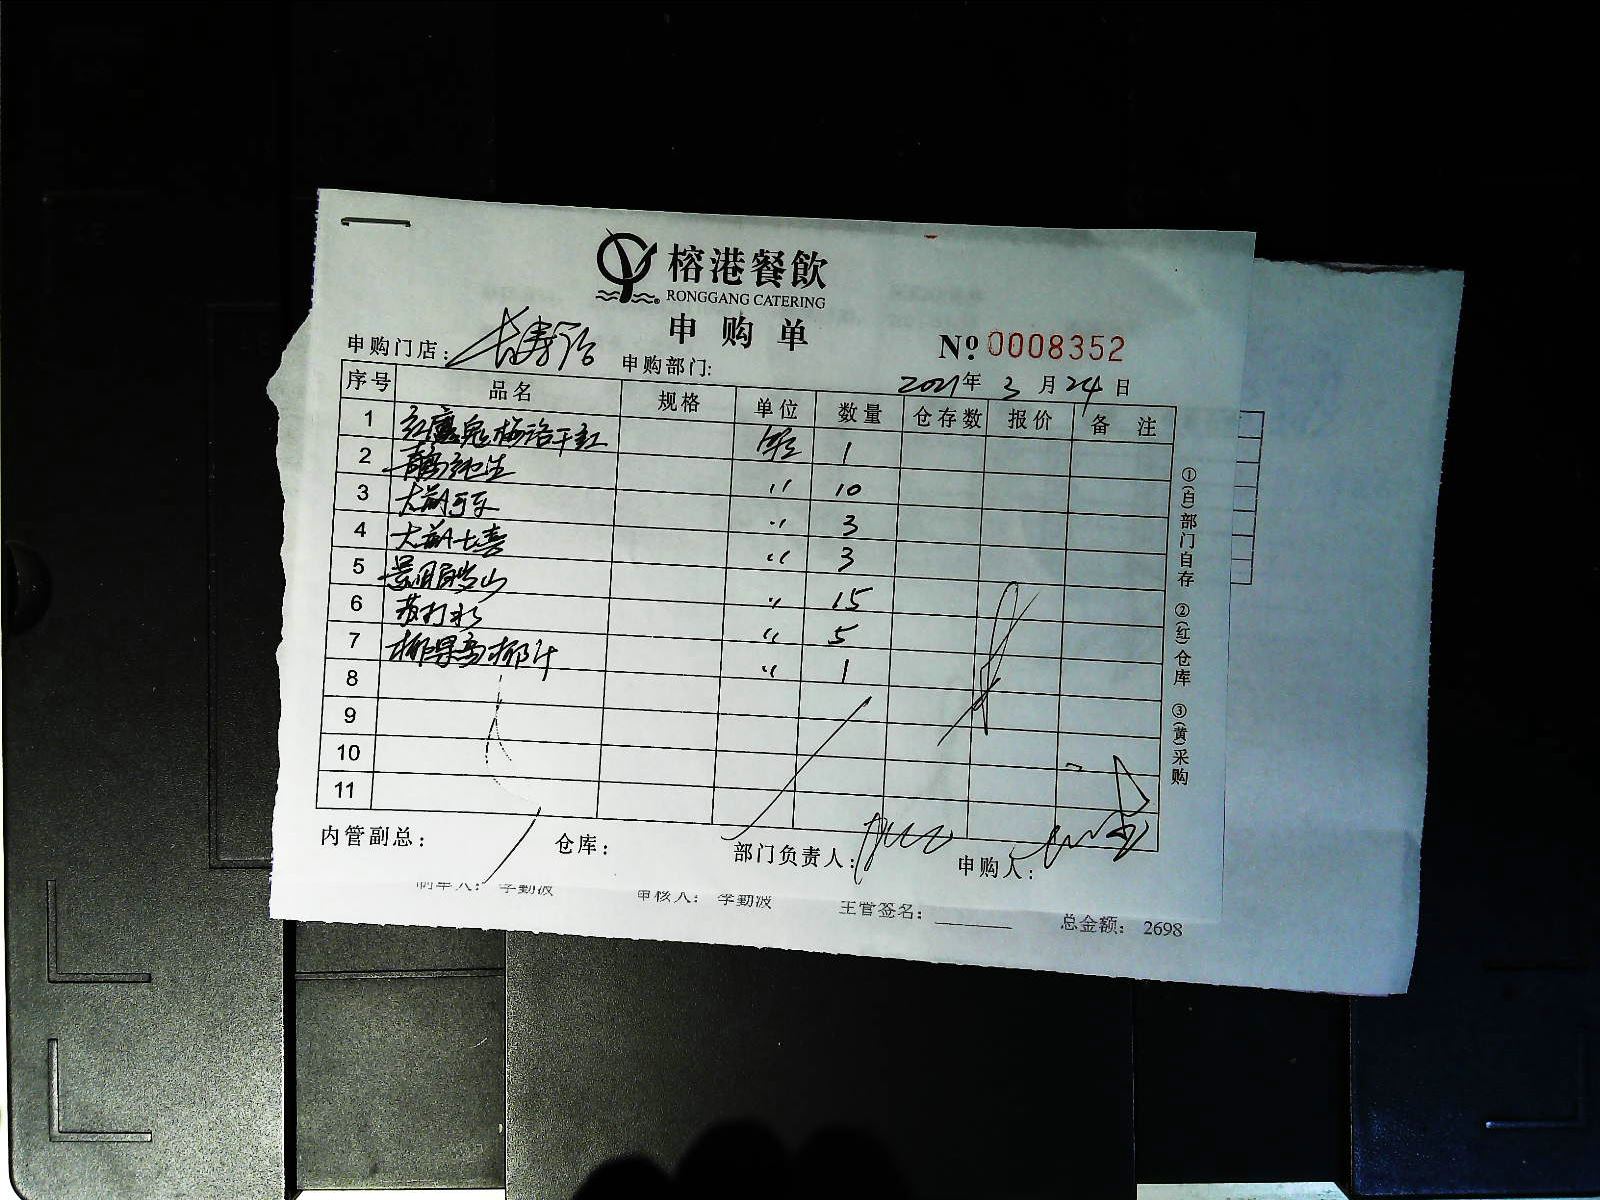 榕港餐飲
RONGGANG CATERING
申购单
申购门店： 长寿路 申购部门: Nº 0008352
2021年 3月24日
序号 品名 规格 单位 数量 仓存数 报价 备注
1 红魔鬼梅洛干红 箱 1
2 青岛纯生 〃 10
3 大瓶可乐 〃 3
4 大瓶七喜 〃 3
5 景田百岁山 〃 15
6 苏打水 〃 5
7 椰果高椰汁 〃 1
8
9
10
11
①(白)部门自存 ②(红)仓库 ③(黄)采购
内管副总： 仓库： 部门负责人： 申购人：
制单人： 李勤波 审核人： 李勤波 主管签名：________ 总金额： 2698